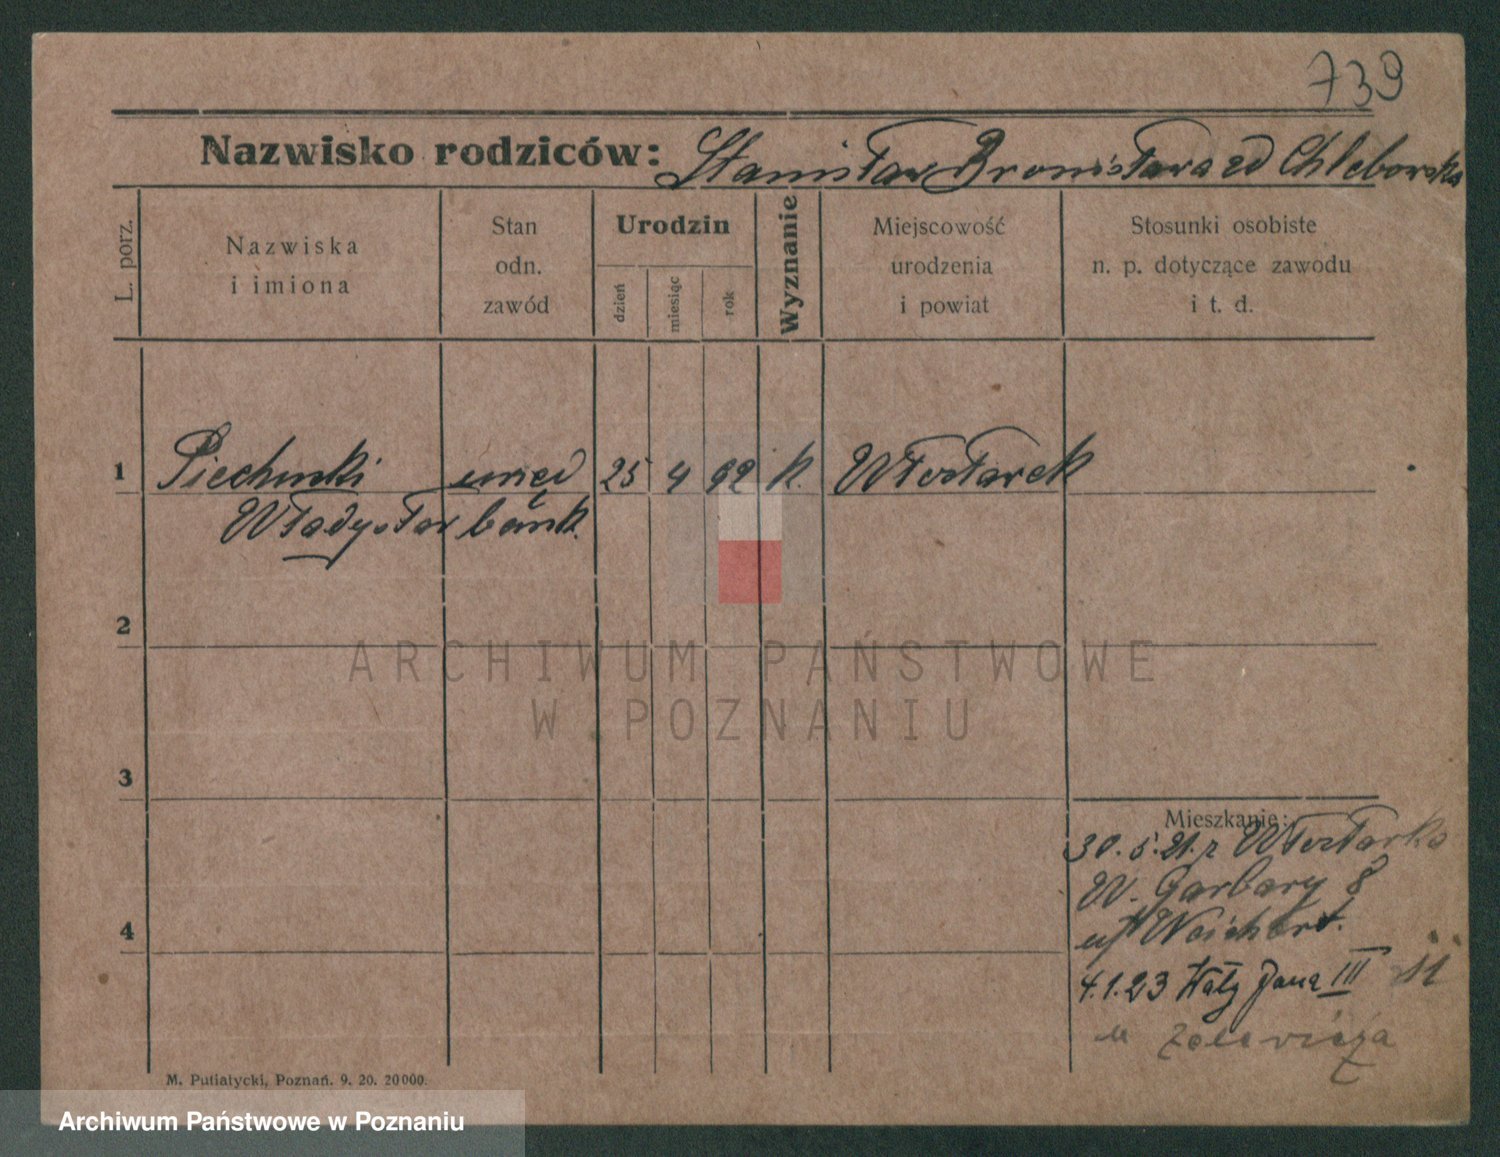 739
Nazwisko rodziców: Stanisław Bronisława zd Chleborska
L. porz.
Nazwiska
i imiona
Stan
odn.
zawód
Urodzin
dzień
miesiąc
rok
Wyznanie
Miejscowość
urodzenia
i powiat
Stosunki osobiste
n. p. dotyczące zawodu
i t. d.
1 Piechucki urzęd 25 4 92 k. Włosławek
Władysław bank.
2
ARCHIWUM PAŃSTWOWE
W POZNANIU
3
Mieszkanie:
30. 5. 21. z
W. Garbary 8
u Weichert.
4
4.1.23 Wały Jana III 11
u
M. Putiatycki, Poznań. 9. 20. 20000.
Archiwum Państwowe w Poznaniu